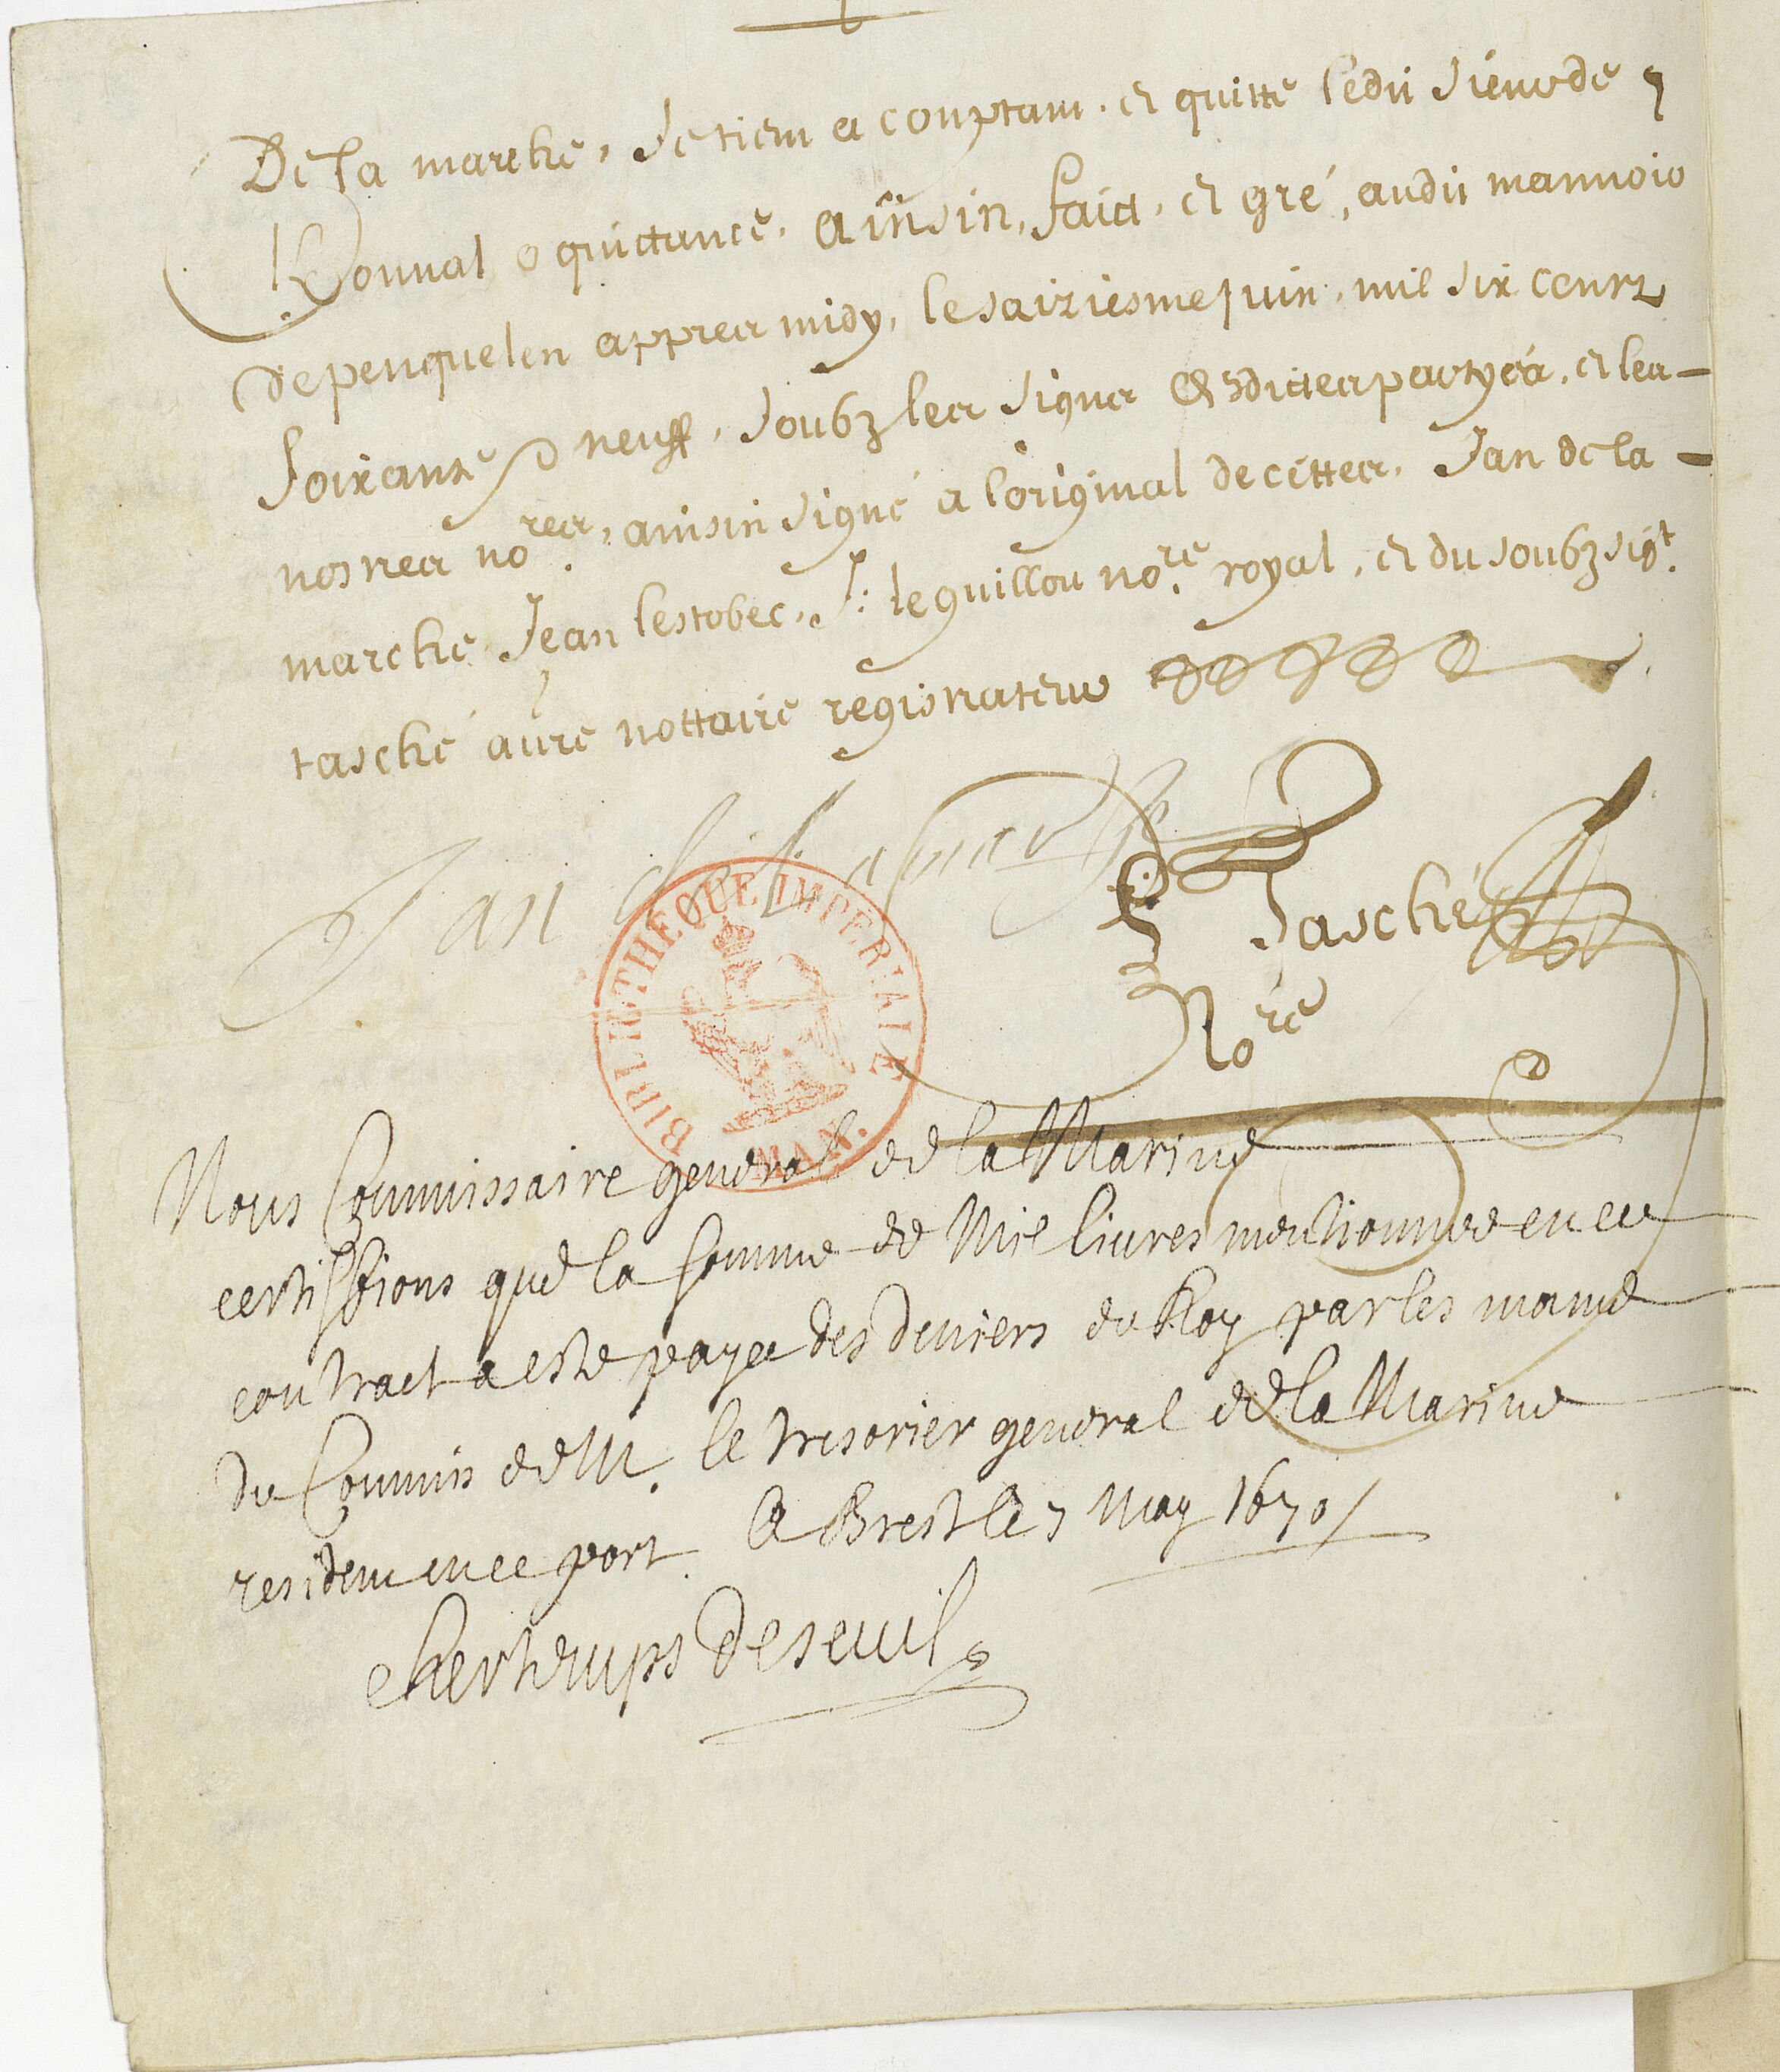 De la marche, se tient a comptant. et quitte ledit sieur de
Bonnal o quittance. ainsin, faict, et gré, audit mannoir
de penquelen appres midy, le saiziesme juin, mil six centz
soixante neuff, soubz les signes desdittes partyes, et les
nostres no.res, ainsin signé a l'original de cettes. Jan de la
marche. Jean lestobec, J: le guillou no.re royal, et du soubz sigt.
tasché autre nottaire registrateur
Jan de la marche
Tasché
No re
BIBLIOTHEQUE IMPERIALE
MAN.
Nous Commissaire general de la Marine
certiffions que la somme de Mil livres mentionnee en ce
contract a esté payee des deniers du Roy par les mains
du Commis de M. le tresorier general de la Marine
resident en ce port. A Brest le 7 May 1670
chertemps Deseuil